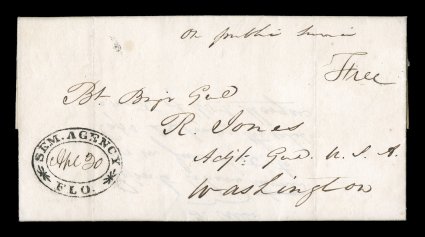 On public service
Free
Bt. Brigr Genl
R. Jones
Adjt. Genl. U.S.A.
Washington
SEM. AGENCY
Apl 30
FLO.